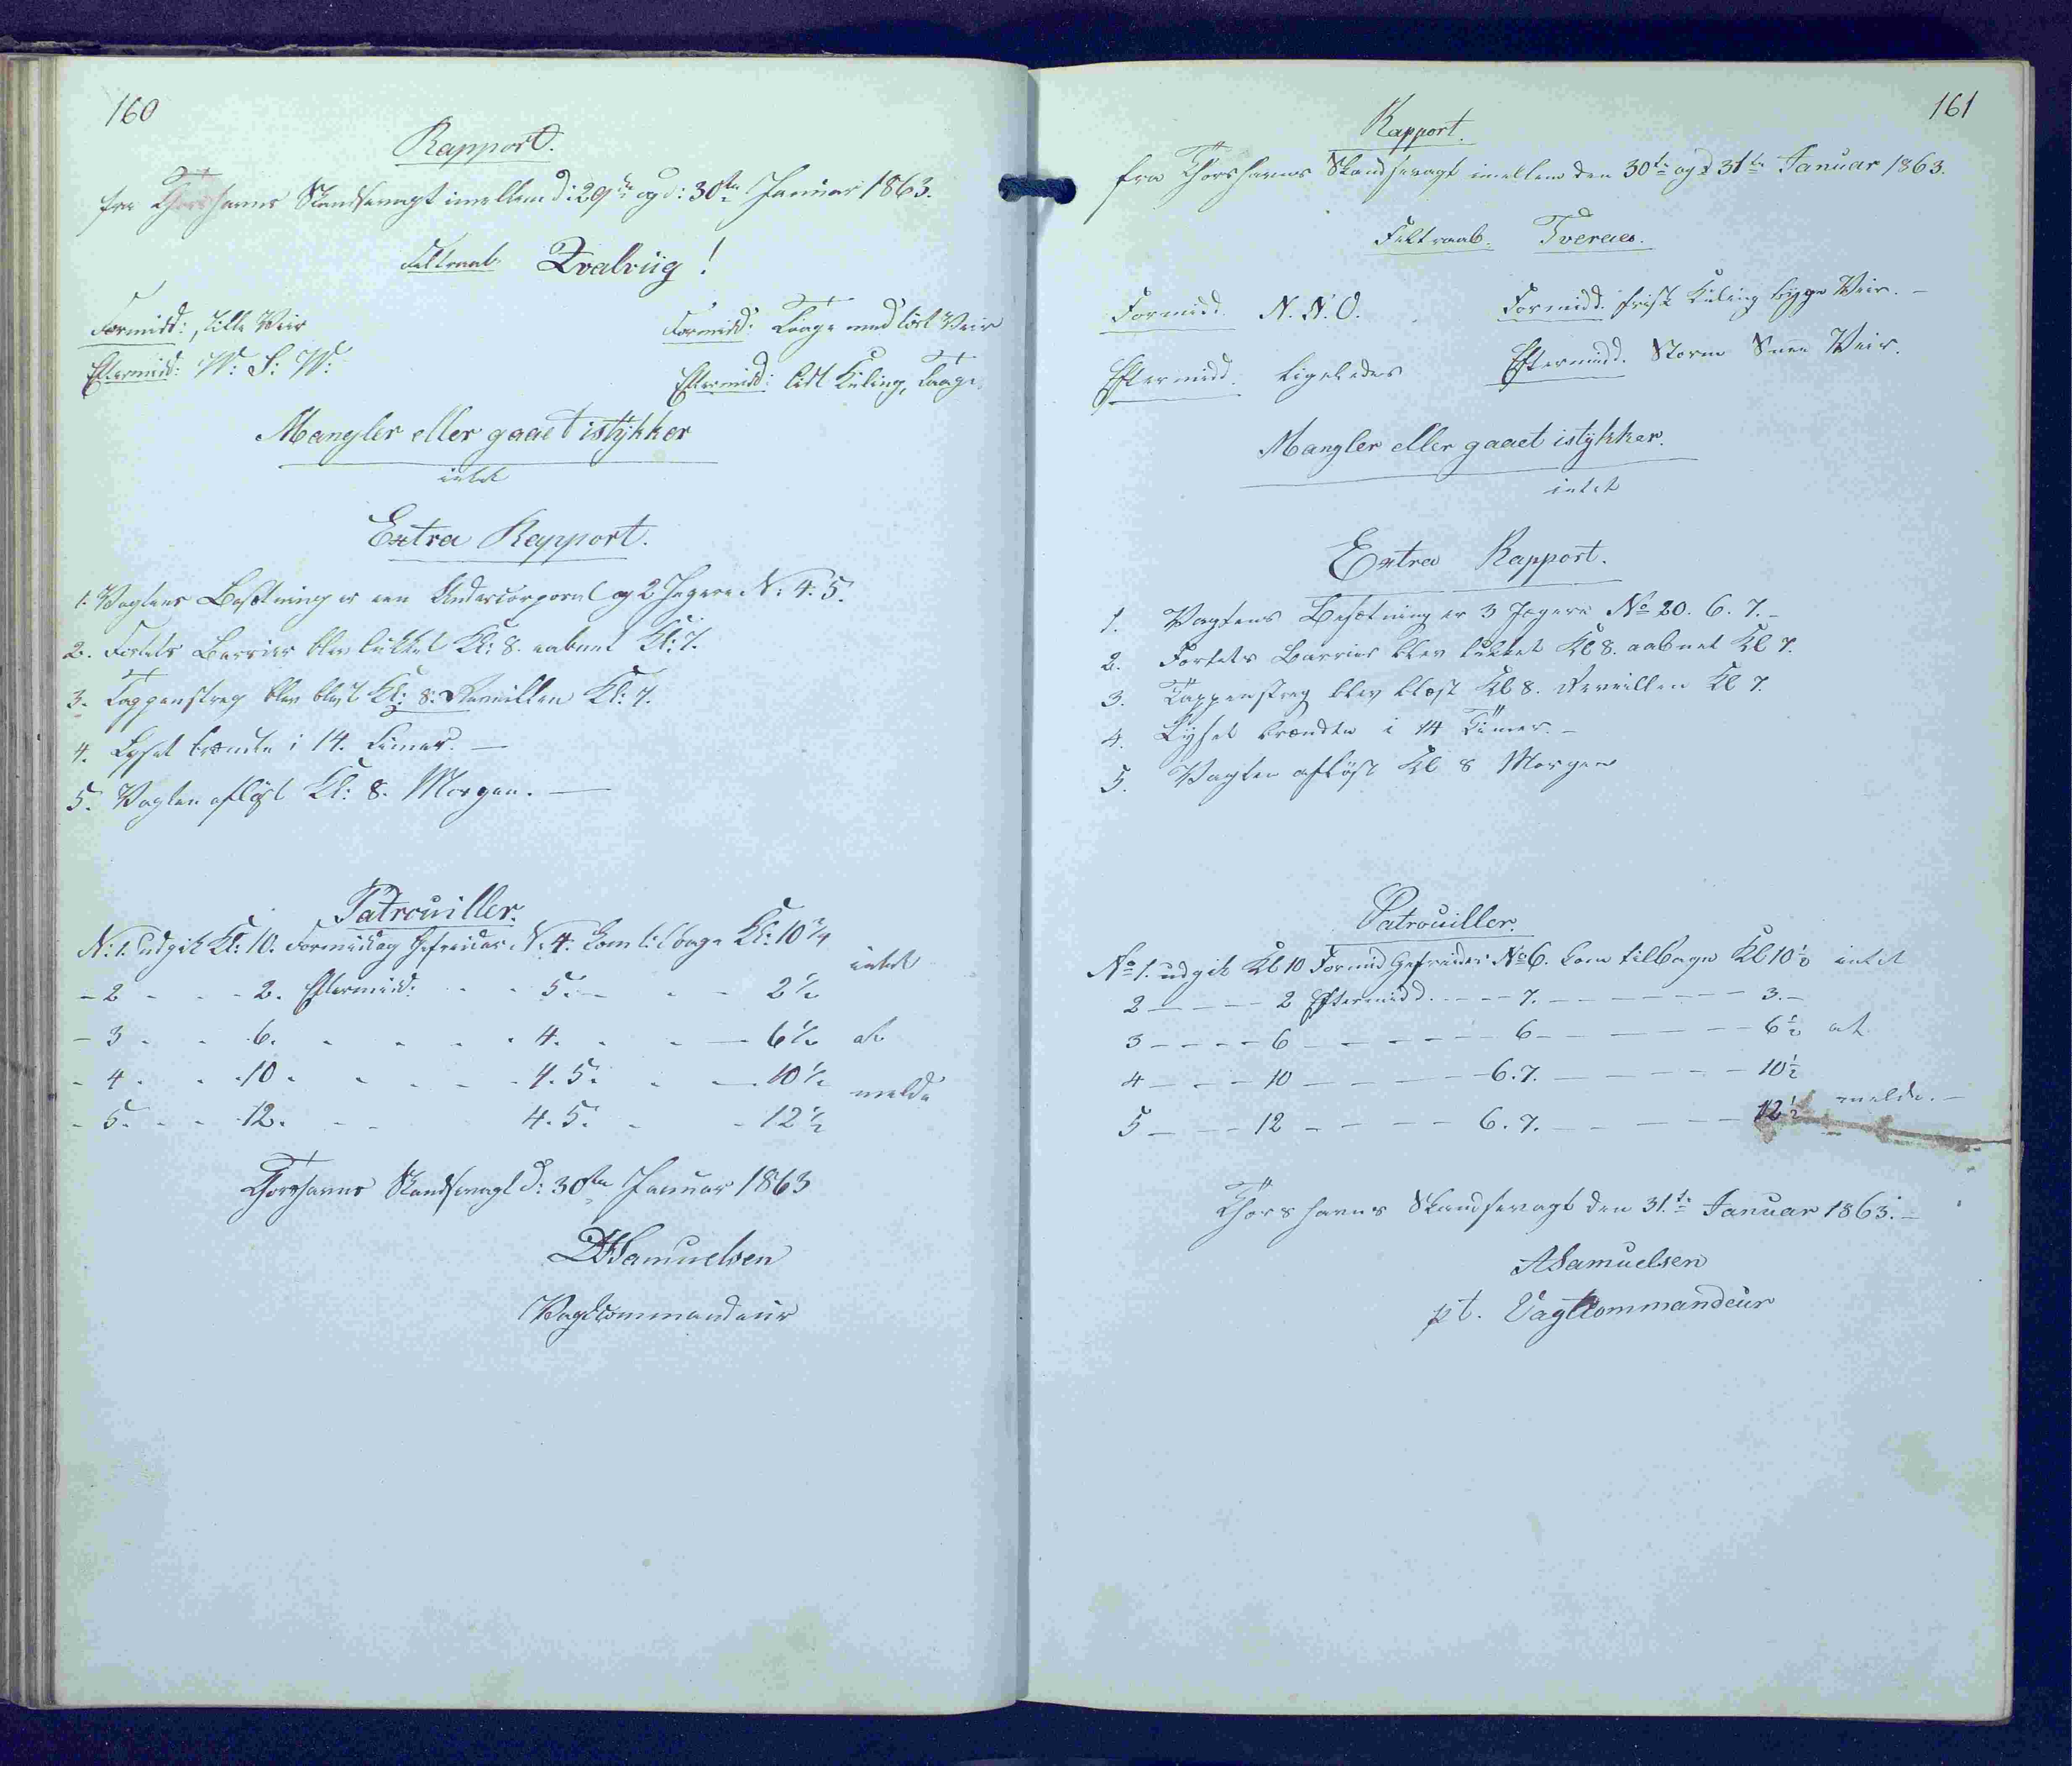 160
Rapport.
fra Thorshavns Skandsevagt imellem d: 29de og d: 30te Januar 1863.
Feltraab. Qvalviig!
Formidd: stille Veir
Formidd: Taage med löst Veir
Eftermidd: W: S: W:
Eftermidd: lidt Kuling, Taage.
Mangler eller gaaet istykker
intet
Extra Rapport.
1. Vagtens Besætning er een Undercorporal og 2 Jægere N: 4. 5.
2. Fortets Barrier blev lukket Kl: 8. aabnet Kl: 7.
3. Tappenstreg blev blæst Kl: 8. Reveillen Kl: 7.
4. Lyset brændte i 14. Timer. —
5. Vagten aflöst Kl: 8. Morgen. —
Patrouiller.
N: 1. udgik Kl: 10. Formiddag Gefreider N: 4. kom tilbage Kl: 10 3/4 intet
- 2 - - - 2. Eftermidd: - - 5. - - - 2 1/2
- 3 - - 6. - - - - 4. - - 6 1/2 at
- 4. - - 10 - - - - 4. 5. - - 10 1/2
melde
- 5. - - 12. - - 4. 5. - - 12 1/2
Thorshavns Skandsevagt d: 30te Januar 1863
Samuelsen
Vagtcommandeur
161
Rapport.
fra Thorshavns Skandsevagt imellem den 30te og d 31te Januar 1863.
Feltraab. Tveraae.
Formidd. N. N. O. Formidd. frisk Kuling bÿge Veir. —
Eftermidd. ligeledes Eftermidd. Storm Snee Veir.
Mangler eller gaaet istÿkker.
intet
Extra Rapport.
1. Vagtens Besætning er 3 Jægere No 20. 6. 7. -
2. Fortets Barrier blev lukket Kl 8. aabnet Kl 7.
3. Tappenstreg blev blæst Kl 8. Reveillen Kl 7.
4. Lÿset brændte i 14 Timer. -
5. Vagten aflöst Kl 8 Morgen
Patrouiller.
No 1. udgik Kl 10 Formid Gefreider No 6. kom tilbage Kl 10 1/2 intet
2 — - - - 2 Eftermidd. - - - 7. - - - - - - 3. -
3 - - - - 6 - - - - - - - 6 - - - - - 6 1/2 at
4 - - - 10 - - - - - 6. 7. - - - - - 10 1/2
5 - - - 12 - - - - - 6. 7. - - - - - 12 1/2 melde. -
Thorshavns Skandsevagt den 31.te Januar 1863. -
ASamuelsen
pt. Vagtcommandeur